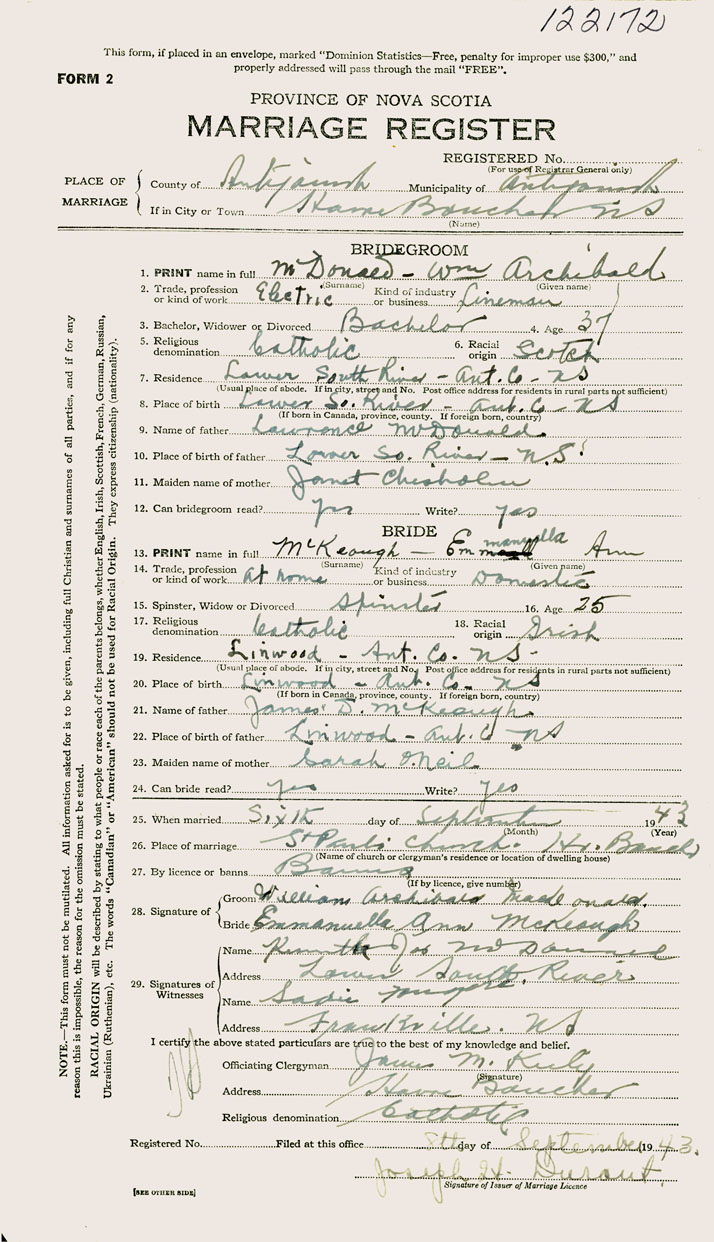 122172
This form, if placed in an envelope, marked "Dominion Statistics—Free, penalty for improper use $300," and
properly addressed will pass through the mail "FREE".
FORM 2
PROVINCE OF NOVA SCOTIA
MARRIAGE REGISTER
REGISTERED No.
(For use of Registrar General only)
PLACE OF MARRIAGE
County of Antigonish Municipality of Antigonish
If in City or Town Havre Boucher NS
(Name)
BRIDEGROOM
1. PRINT name in full McDonald - Wm Archibald
(Surname) (Given name)
2. Trade, profession or kind of work Electric Kind of industry or business Lineman
3. Bachelor, Widower or Divorced Bachelor 4. Age 37
5. Religious denomination Catholic 6. Racial origin Scotch
7. Residence Lower South River - Ant. Co - NS
(Usual place of abode. If in city, street and No. Post office address for residents in rural parts not sufficient)
8. Place of birth Lower So. River - Ant. Co - NS
(If born in Canada, province, county. If foreign born, country)
9. Name of father Lawrence McDonald
10. Place of birth of father Lower So. River - N.S.
11. Maiden name of mother Janet Chisholm
12. Can bridegroom read? yes Write? yes
BRIDE
13. PRINT name in full McKeough - Emmanuella Ann
(Surname) (Given name)
14. Trade, profession or kind of work At home Kind of industry or business Domestic
15. Spinster, Widow or Divorced Spinster 16. Age 25
17. Religious denomination Catholic 18. Racial origin Irish
19. Residence Linwood - Ant. Co. NS-
(Usual place of abode. If in city, street and No. Post office address for residents in rural parts not sufficient)
20. Place of birth Linwood - Ant. Co. NS
(If born in Canada, province, county. If foreign born, country)
21. Name of father James D. McKeough
22. Place of birth of father Linwood - Ant. Co - NS
23. Maiden name of mother Sarah O'Neil
24. Can bride read? yes Write? yes
25. When married Sixth day of September 1943
(Month) (Year)
26. Place of marriage St Paul's Church. Hr. Boucher
(Name of church or clergyman's residence or location of dwelling house)
27. By licence or banns Banns
(If by licence, give number)
28. Signature of
Groom William Archibald MacDonald.
Bride Emmanuella Ann McKeough
29. Signatures of Witnesses
Name Jos McDonald
Address Lower South River
Name Sadie
Address Frankville. NS
I certify the above stated particulars are true to the best of my knowledge and belief.
Officiating Clergyman James M.
(Signature)
Address Havre Boucher
Religious denomination Catholic
Registered No. Filed at this office 8th day of September 1943.
Joseph H. Durant.
Signature of Issuer of Marriage Licence
[SEE OTHER SIDE]
NOTE.—This form must not be mutilated. All information asked for is to be given, including full Christian and surnames of all parties, and if for any
reason this is impossible, the reason for the omission must be stated.
RACIAL ORIGIN will be described by stating to what people or race each of the parents belongs, whether English, Irish, Scottish, French, German, Russian,
Ukrainian (Ruthenian), etc. The words "Canadian" or "American" should not be used for Racial Origin. They express citizenship (nationality).